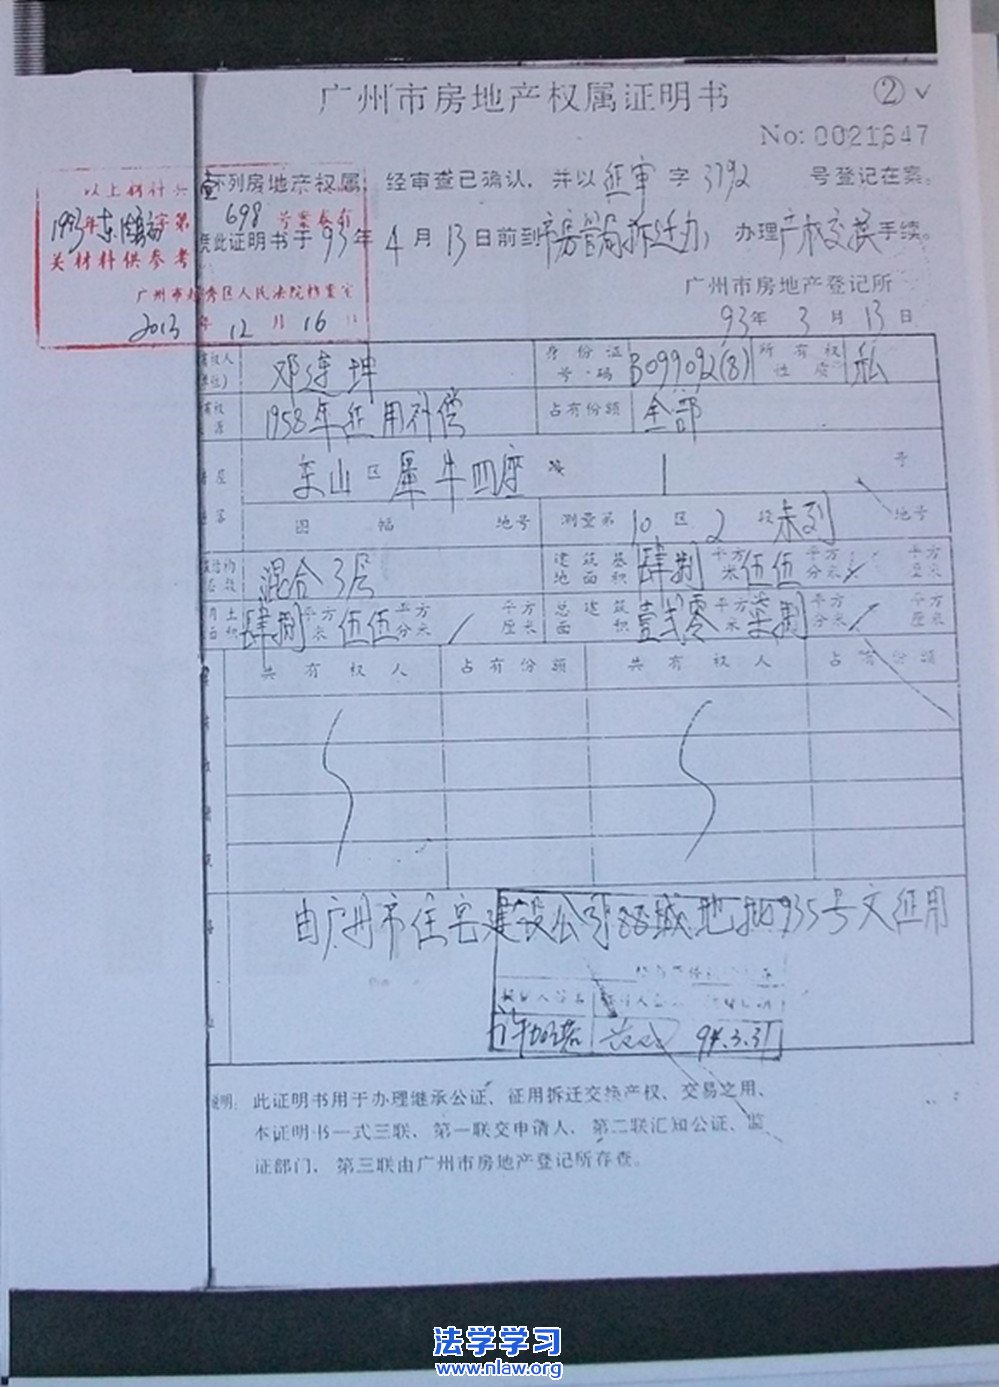 广州市房地产权属证明书 ② ✓
No: 0021647
下列房地产权属 经审查已确认，并以征审字3792 号登记在案。
凭此证明书于93年4月13日前到市房管局拆迁办，办理产权交换手续。
广州市房地产登记所
93年3月13日
以上材料共 壹
1993年东 字第
698 号案卷有
关材料供参考
广州市越秀区人民法院档案室
2013年12月16日
权人 邓连坤 身份证号码 B099092(8) 所有权性质 私
1958年征用补偿 占有份额 全部
东山区犀牛四座 1 号
图幅 地号 测量第10区2段未列 地号
混合3层 建筑基地面积 肆捌平方米伍伍平方分米/平方厘米
用土面积 肆捌平方米伍伍平方分米/平方厘米 总建筑面积 壹贰零平方米柒捌平方分米/平方厘米
共有权人 占有份额 共有权人 占有份额
由广州市住宅建设公司88城地批935号文征用
94.3.31
说明：此证明书用于办理继承公证、征用拆迁交换产权、交易之用、
本证明书一式三联、第一联交申请人、第二联汇知公证、监
证部门、第三联由广州市房地产登记所存查。
法学学习
www.nlaw.org